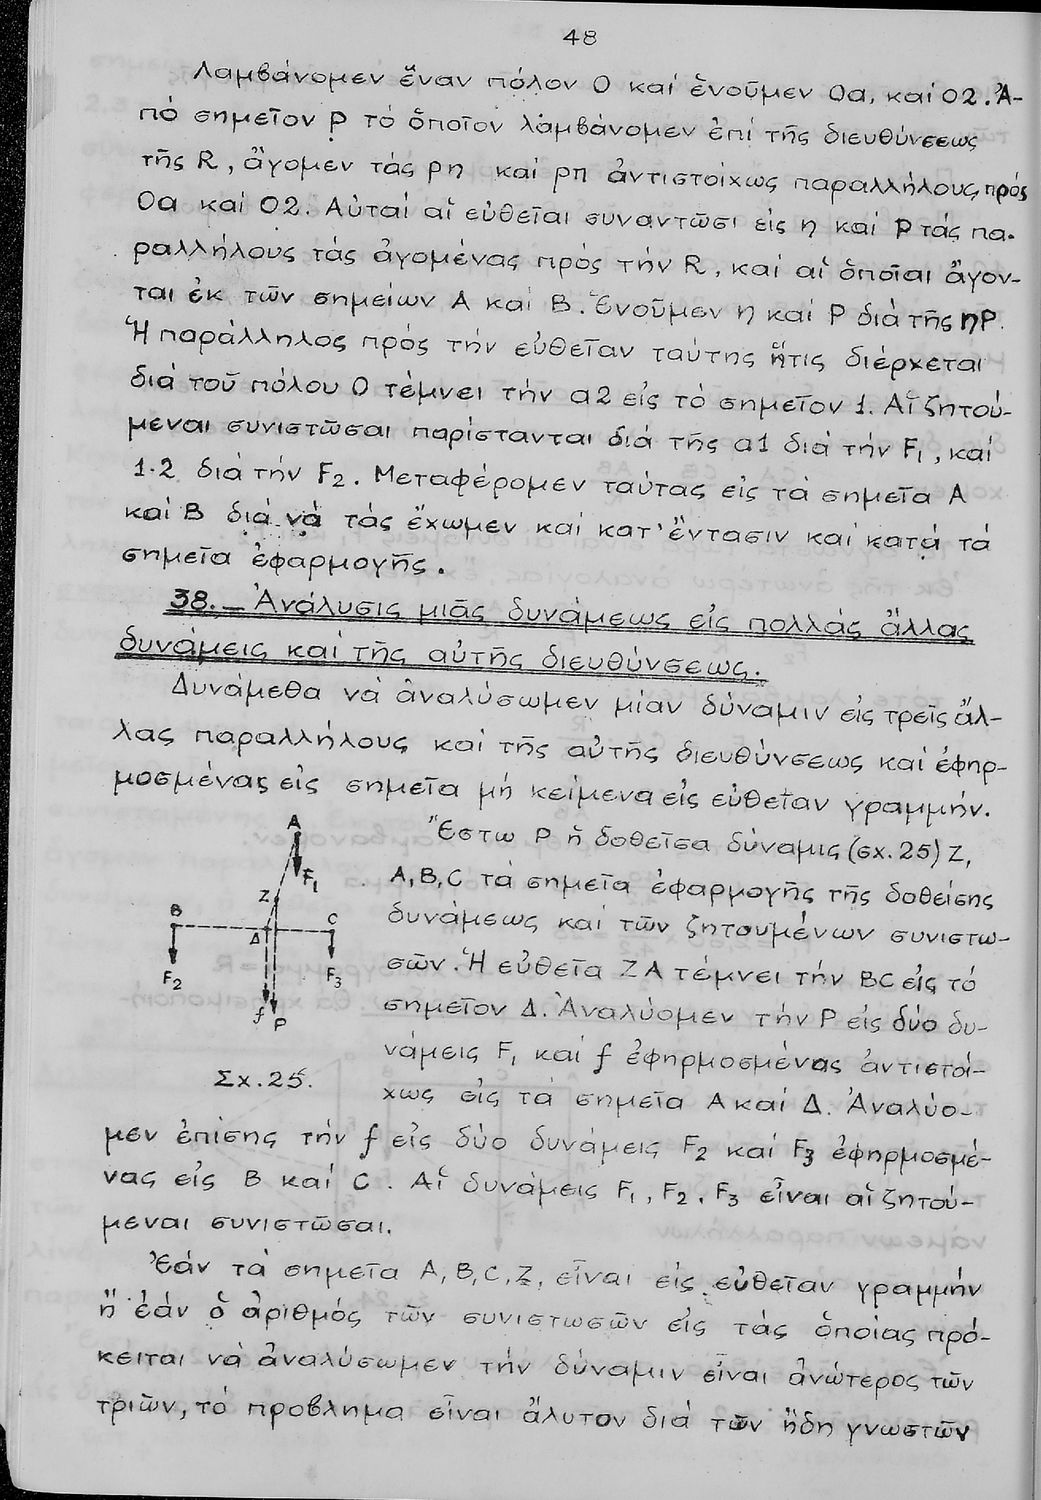 48
Λαμβάνομεν ἕναν πόλον Ο καί ἑνοῦμεν Οα, καί Ο2. Ἀ-
πό σημεῖον ρ τό ὁποῖον λαμβάνομεν ἐπί τῆς διευθύνσεως
τῆς R, ἄγομεν τάς ρη καί ρπ ἀντιστοίχως παραλλήλους πρός
Οα καί Ο2. Αὐταί αἱ εὐθεῖαι συναντῶσι εἰς η καί Ρ τάς πα-
ραλλήλους τάς ἀγομένας πρός τήν R, καί αἱ ὁποῖαι ἄγον-
ται ἐκ τῶν σημείων Α καί Β. Ἑνοῦμεν η καί Ρ διά τῆς ηΡ.
Ἡ παράλληλος πρός τήν εὐθεῖαν ταύτης ἥτις διέρχεται
διά τοῦ πόλου Ο τέμνει τήν α2 εἰς τό σημεῖον 1. Αἱ ζητού-
μεναι συνιστῶσαι παρίστανται διά τῆς α1 διά τήν F₁, καί
1-2 διά τήν F₂. Μεταφέρομεν ταύτας εἰς τά σημεῖα Α
καί Β διά νά τάς ἔχωμεν καί κατ' ἔντασιν καί κατά τά
σημεῖα ἐφαρμογῆς.
38.- Ἀνάλυσις μιᾶς δυνάμεως εἰς πολλάς ἄλλας
δυνάμεις καί τῆς αὐτῆς διευθύνσεως.
Δυνάμεθα νά ἀναλύσωμεν μίαν δύναμιν εἰς τρεῖς ἄλ-
λας παραλλήλους καί τῆς αὐτῆς διευθύνσεως καί ἐφηρ-
μοσμένας εἰς σημεῖα μή κείμενα εἰς εὐθεῖαν γραμμήν.
Ἔστω Ρ ἡ δοθεῖσα δύναμις (σχ. 25) Ζ,
Α, Β, C τά σημεῖα ἐφαρμογῆς τῆς δοθείσης
δυνάμεως καί τῶν ζητουμένων συνιστω-
σῶν. Ἡ εὐθεῖα ΖΑ τέμνει τήν BC εἰς τό
σημεῖον Δ. Ἀναλύομεν τήν Ρ εἰς δύο δυ-
νάμεις F₁ καί f ἐφηρμοσμένας ἀντιστοί-
χως εἰς τά σημεῖα Α καί Δ. Ἀναλύο-
Α
F₁
Ζ
Β
C
Δ
F₂
F₃
f
Ρ
Σχ. 25.
μεν ἐπίσης τήν f εἰς δύο δυνάμεις F₂ καί F₃ ἐφηρμοσμέ-
νας εἰς Β καί C. Αἱ δυνάμεις F₁, F₂, F₃ εἶναι αἱ ζητού-
μεναι συνιστῶσαι.
Ἐάν τά σημεῖα Α, Β, C, Ζ, εἶναι εἰς εὐθεῖαν γραμμήν
ἤ ἐάν ὁ ἀριθμός τῶν συνιστωσῶν εἰς τάς ὁποίας πρό-
κειται νά ἀναλύσωμεν τήν δύναμιν εἶναι ἀνώτερος τῶν
τριῶν, τό πρόβλημα εἶναι ἄλυτον διά τῶν ἤδη γνωστῶν